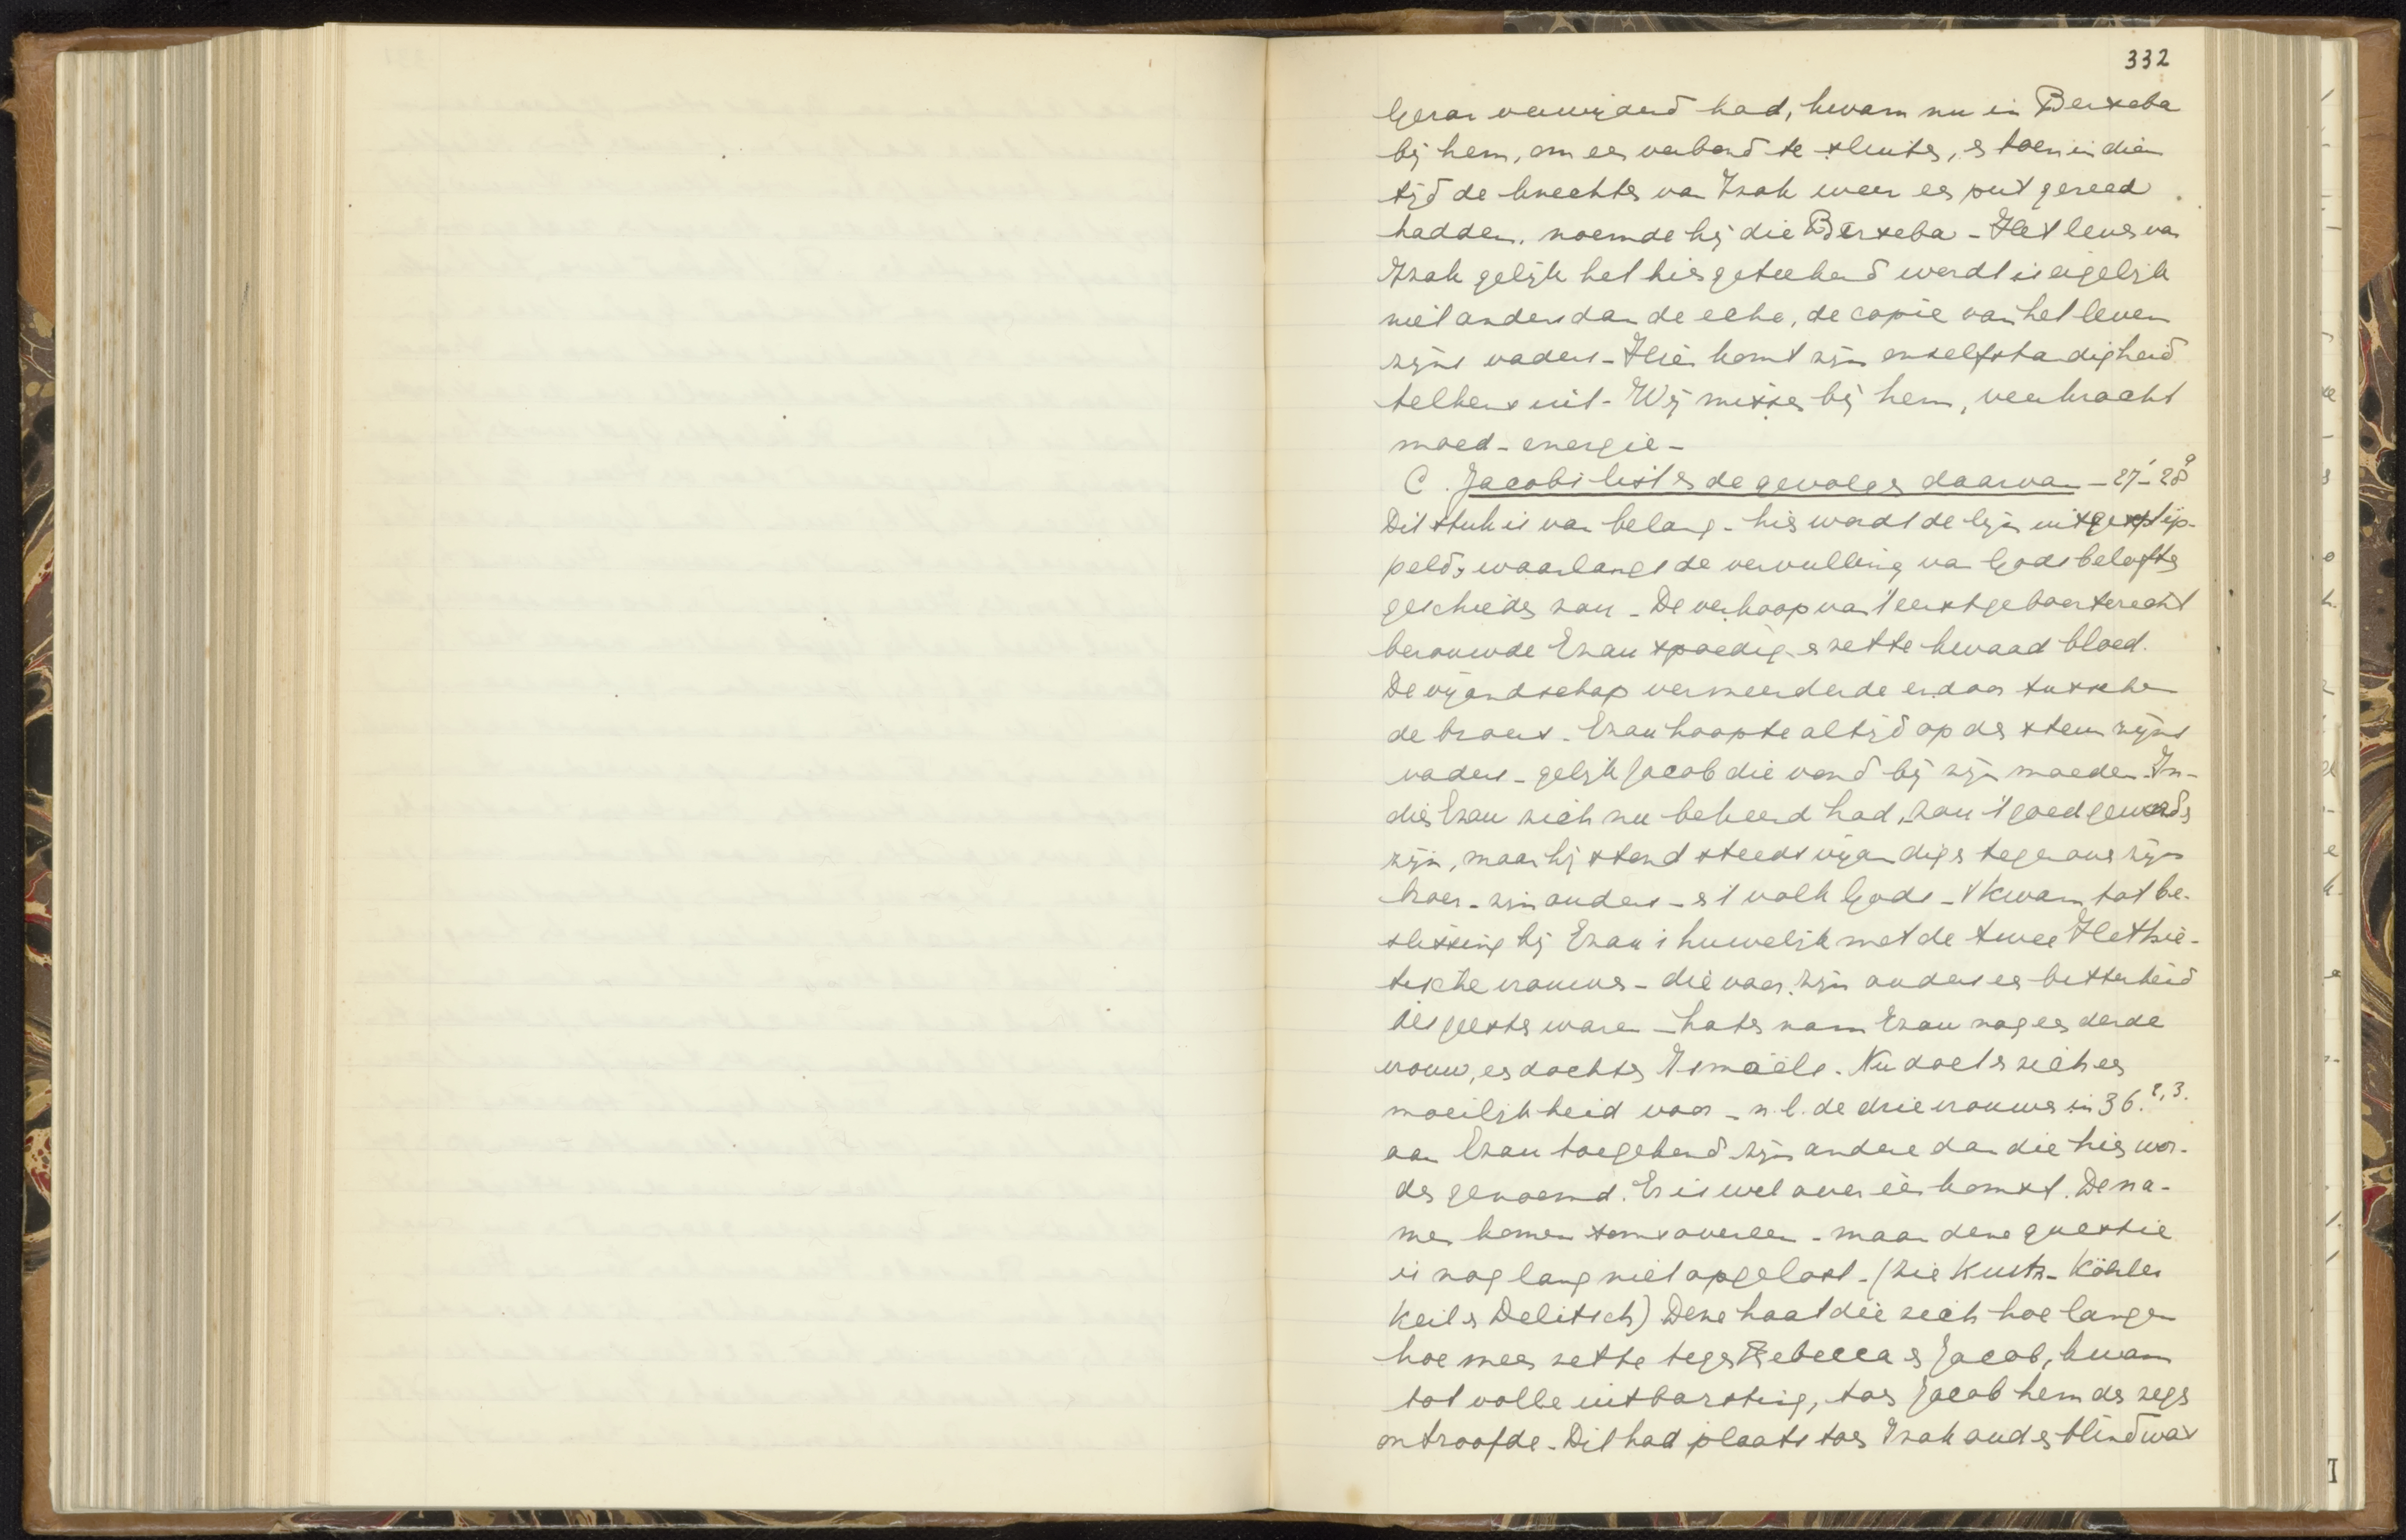 332
Gerar verwijderd had, kwam nu in Berseba
bij hem, om een verbond te sluiten, & toen in dien
tijd de knechten van Izak weer een put gereed
hadden, noemde hij die Berseba - Het leven van
Izak gelijk het hier geteekend wordt is eigelijk
niet anders dan de echo, de copie van het leven
zijns vaders - Hier komt zijn onzelfstandigheid
telkens uit - Wij missen bij hem, veerkracht
moed - energie -
C. Jacobs list & de gevolgen daarvan - 27¹ - 28⁹
Dit stuk is van belang - hier wordt de lijn uitgestip-
peld, waarlangs de vervulling van Gods beloften
geschieden zou - De verkoop van 't eerstgeboorterecht
berouwde Ezau spoedig & zette kwaad bloed.
De vijandschap vermeerderde er door tusschen
de broers - Ezau hoopte altijd op den steun zijns
vaders - gelijk Jacob die vond bij zijn moeder - In-
dien Ezau zich nu bekeerd had, zou 't goed geworden
zijn, maar hij stond steeds vijandiger tegenover zijn
broer - zijn ouders - & 't volk Gods - 't kwam tot be-
slissing bij Ezau's huwelijk met de twee Hethie-
tische vrouwen - die voor zijn ouders een bitterheid
des geestes waren - later nam Ezau nog een derde
vrouw, een dochter Ismaëls. Nu doet er zich een
moeilijkheid voor - n.l. de drie vrouwen in 36.²,³.
aan Ezau toegekend zijn andere dan die hier wor-
den genoemd. Er is wel overeenkomst. De na-
men komen soms overeen - maar deze questie
is nog lang niet opgelost - (zie Kurtz - Köhler
Keil & Delitsch) Deze haat die zich hoe langer
hoe meer zette tegen Rebecca & Jacob, kwam
tot volle uitbarsting, toen Jacob hem den zegen
ontroofde - Dit had plaats toen Izak oud & blind was